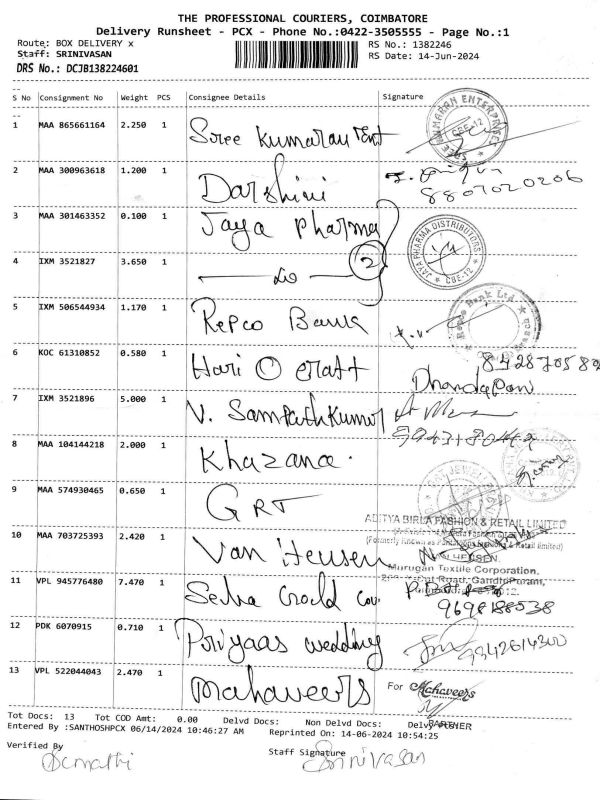 THE PROFESSIONAL COURIERS, COIMBATORE
Delivery Runsheet - PCX - Phone No.:0422-3505555 - Page No.:1
Route: BOX DELIVERY x RS No.: 1382246
Staff: SRINIVASAN RS Date: 14-Jun-2024
DRS No.: DCJB138224601
S No Consignment No Weight PCS Consignee Details Signature
1 MAA 865661164 2.250 1 Sree Kumaran Ent
2 MAA 300963618 1.200 1 Darshini 8807020206
3 MAA 301463352 0.100 1 Jaya Pharma
JAYA PHARMA DISTRIBUTORS CBE-12
4 IXM 3521827 3.650 1 — do — 2
5 IXM 506544934 1.170 1 Repco Bank
6 KOC 61310852 0.580 1 Hari O eraft Dhandapani
7 IXM 3521896 5.000 1 V. Sampathkumar
8 MAA 104144218 2.000 1 Khazana.
9 MAA 574930465 0.650 1 GRT
ADITYA BIRLA FASHION & RETAIL LIMITED
10 MAA 703725393 2.420 1 Van Heusen
Murugan Textile Corporation,
11 VPL 945776480 7.470 1 9698188538
12 PDK 6070915 0.710 1 Priyaas wedding 9342614300
13 VPL 522044043 2.470 1 Mahaveers For Mahaveers
Tot Docs: 13 Tot COD Amt: 0.00 Delvd Docs: Non Delvd Docs: Delvd
PARTNER
Entered By :SANTHOSHPCX 06/14/2024 10:46:27 AM Reprinted On: 14-06-2024 10:54:25
Verified By Staff Signature
Srinivasan